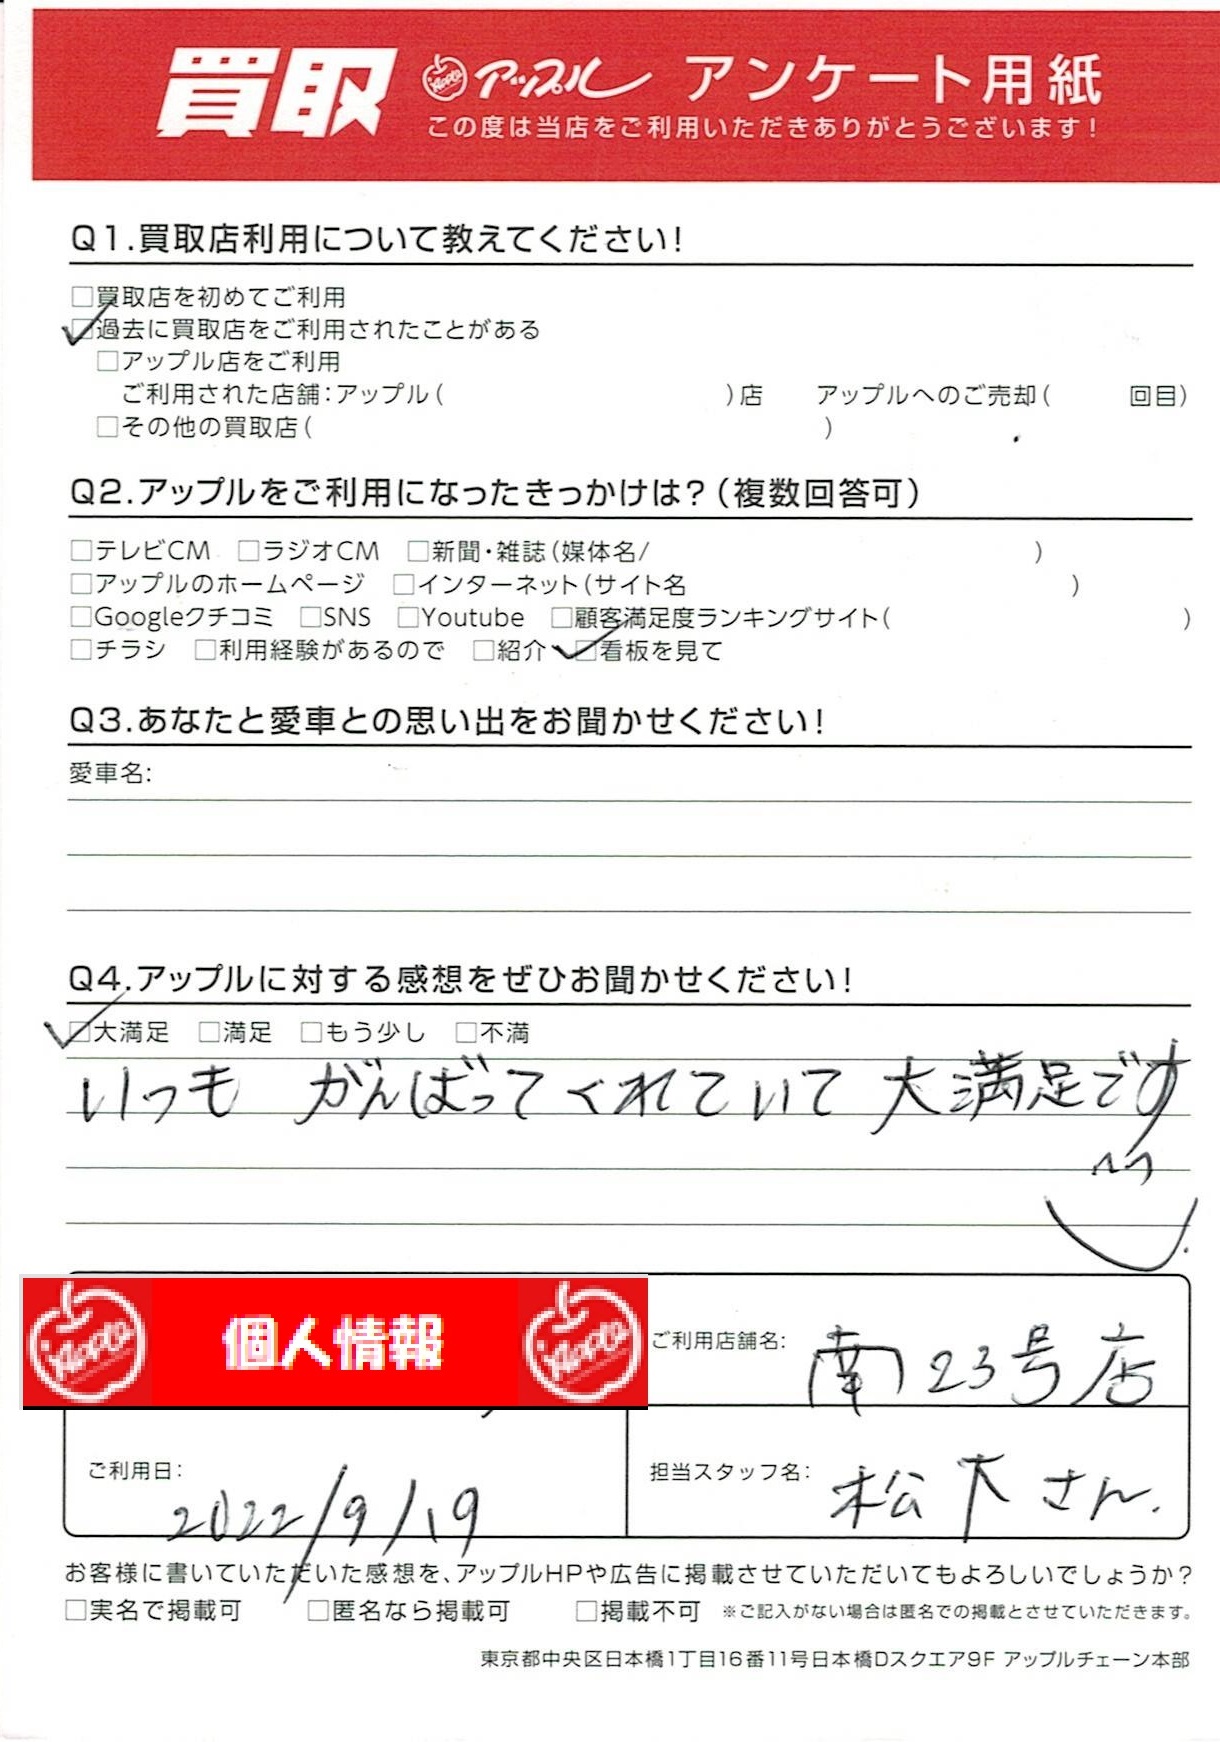 買取 Apple アップル アンケート用紙
この度は当店をご利用いただきありがとうございます!
Q1.買取店利用について教えてください!
□買取店を初めてご利用
□過去に買取店をご利用されたことがある
□アップル店をご利用
ご利用された店舗:アップル( )店 アップルへのご売却( 回目)
□その他の買取店( )
Q2.アップルをご利用になったきっかけは?(複数回答可)
□テレビCM □ラジオCM □新聞・雑誌(媒体名/ )
□アップルのホームページ □インターネット(サイト名 )
□Googleクチコミ □SNS □Youtube □顧客満足度ランキングサイト( )
□チラシ □利用経験があるので □紹介 □看板を見て
Q3.あなたと愛車との思い出をお聞かせください!
愛車名:
Q4.アップルに対する感想をぜひお聞かせください!
□大満足 □満足 □もう少し □不満
いつも がんばってくれていて 大満足です
Apple 個人情報 Apple
ご利用店舗名: 南23号店
ご利用日: 2022/9/19
担当スタッフ名: 松下さん.
お客様に書いていただいた感想を、アップルHPや広告に掲載させていただいてもよろしいでしょうか?
□実名で掲載可 □匿名なら掲載可 □掲載不可 ※ご記入がない場合は匿名での掲載とさせていただきます。
東京都中央区日本橋1丁目16番11号日本橋Dスクエア9F アップルチェーン本部